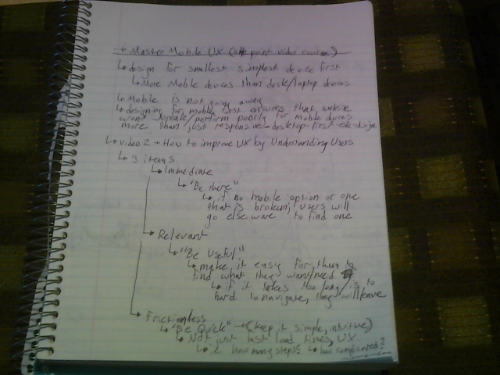 → Master Mobile UX (
↳ design for smallest simplest device first
↳ More Mobile devices than desk/laptop devices
↳ Mobile is not going away
↳ designing for mobile first ensures that website
wont update/perform poorly for Mobile devices
more than just responsive - desktop-first
↳ video 2 → How to improve UX by Understanding Users
↳ 3 items
↳ Immediate
↳ "Be there"
↳ if no mobile option or one
that is broken, users will
go elseware to find one
↳ Relevant
↳ "Be Useful"
↳ make it easy for them to
find what they want/need
↳ if it takes too long/is to
hard to navigate, they will leave
↳ Frictionless
↳ "Be Quick" → (keep it simple, intuitive)
↳ Not just fast load times, UX
↳ how many steps? ↳ how complicated?